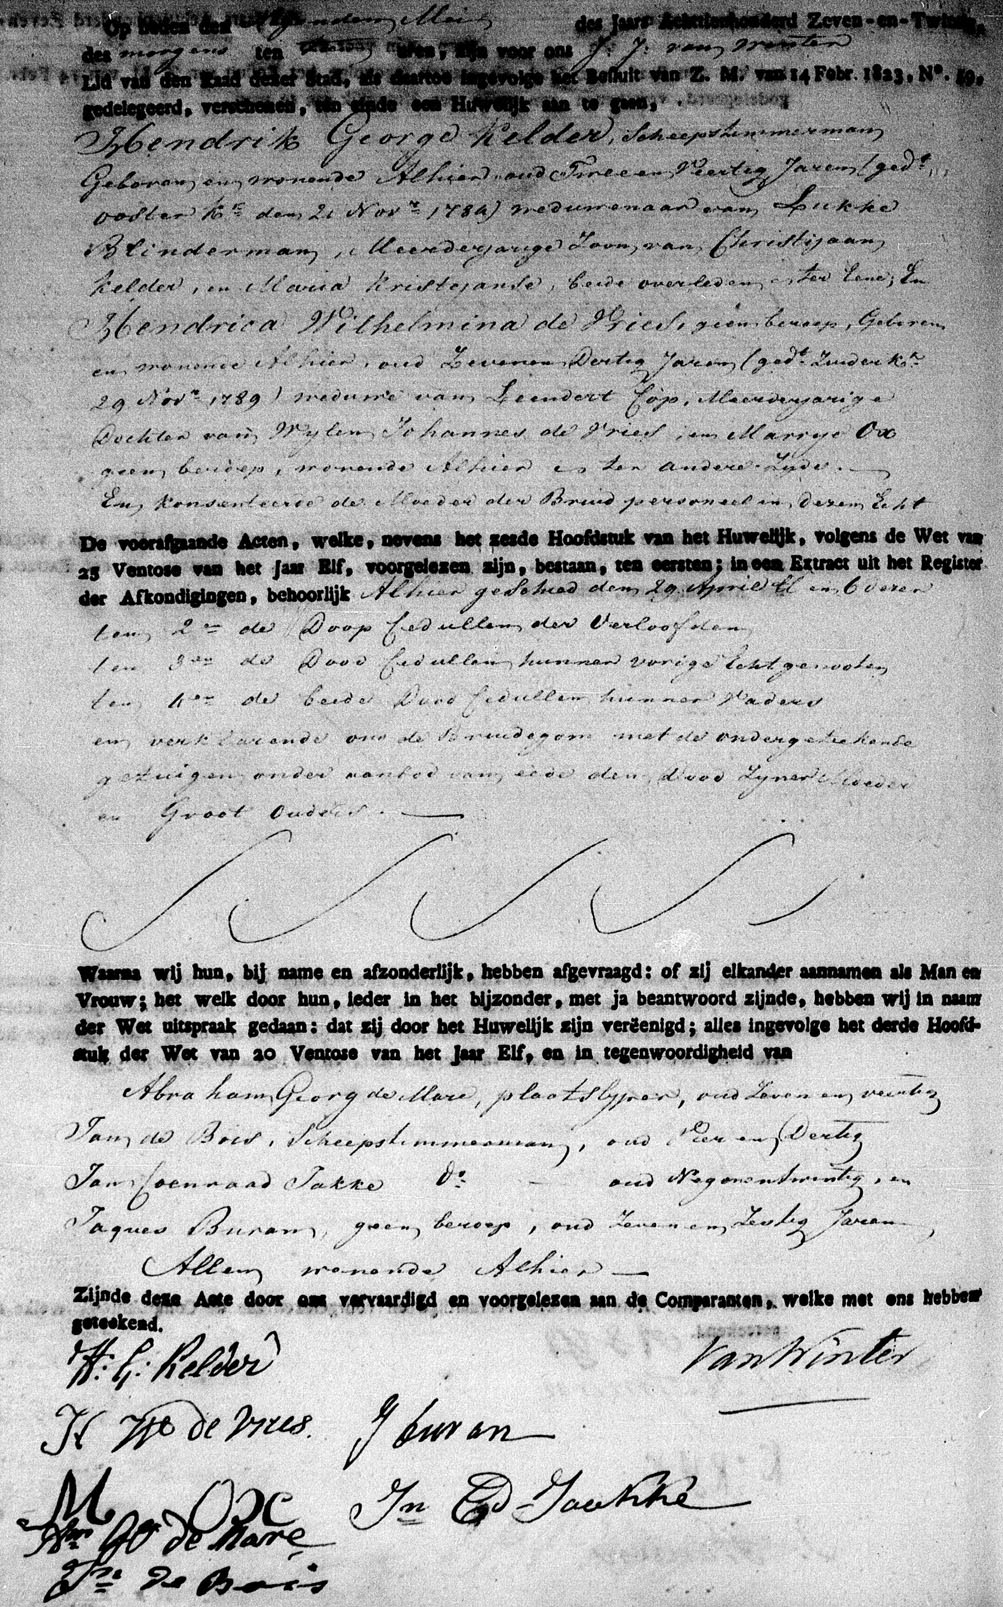 Op heden den Mei des Jaars Achttienhonderd Zeven-en-Twintig,
des morgens ten uren, zijn voor ons J. J. van Winter
Lid van den Raad dezer Stad, als daartoe ingevolge het Besluit van Z. M. van 14 Febr. 1823, No. 49,
gedelegeerd, verschenen, ten einde een Huwelijk aan te gaan,
Hendrik George Kelder, Scheepstimmerman
Geboren en wonende Alhier oud Twee en Veertig Jaren (gedt.
ooster Ke den 21 Novr 1784) weduwenaar van Lukke
Blinderman, Meerderjarige Zoon van Christijaan
Kelder, en Maria Kristijanse, beide overleden ter Eene; En
Hendrica Wilhelmina de Vries, geen beroep, Geboren
en wonende Alhier, oud Zevenen Dertig Jaren (gedt Zuider Kr
29 Novr 1789) weduwe van Leendert Cop, Meerderjarige
Dochter van Wylen Johannes de Vries, en Marrye Ox
geen beroep, wonende Alhier ter andere Zyde.
En konsenteerde de Moeder der Bruid personeel in dezen Echt
De voorafgaande Acten, welke, nevens het zesde Hoofdstuk van het Huwelijk, volgens de Wet van
25 Ventose van het Jaar Elf, voorgelezen zijn, bestaan, ten eersten; in een Extract uit het Register
der Afkondigingen, behoorlijk Alhier geschied den 29 April Ll en 6 dezer
ten 2en de Doop Cedullen der Verloofden
ten 3en de Dood Cedullen hunner vorige Echtgenooten
ten 4en de beide Dood Cedullen hunner Vaders
en verklarende ons de Bruidegom met de ondergetekende
getuigen onder aanbod van eede den Dood Zyner Moeder
en Groot Ouders.
Waarna wij hun, bij name en afzonderlijk, hebben afgevraagd: of zij elkander aannamen als Man en
Vrouw; het welk door hun, ieder in het bijzonder, met ja beantwoord zijnde, hebben wij in naam
der Wet uitspraak gedaan: dat zij door het Huwelijk zijn veréenigd; alles ingevolge het derde Hoofd-
stuk der Wet van 20 Ventose van het Jaar Elf, en in tegenwoordigheid van
Abraham Georg de Mare, plaatslyper, oud Zeven en veertig
Jan de Bois, Scheepstimmerman, oud Vier en Dertig
Jan Coenraad Jakke do. oud Negenentwintig, en
Jaques Buran, geen beroep, oud Zeven en Zestig Jaren,
Allen wonende Alhier
Zijnde deze Acte door ons vervaardigd en voorgelezen aan de Comparanten, welke met ons hebben
geteekend.
H: G: Kelder
van Winter
H W de Vries.
J buran
M Ox
Jn Cd Jaukke
Am Go de Mare
Jn de Bois